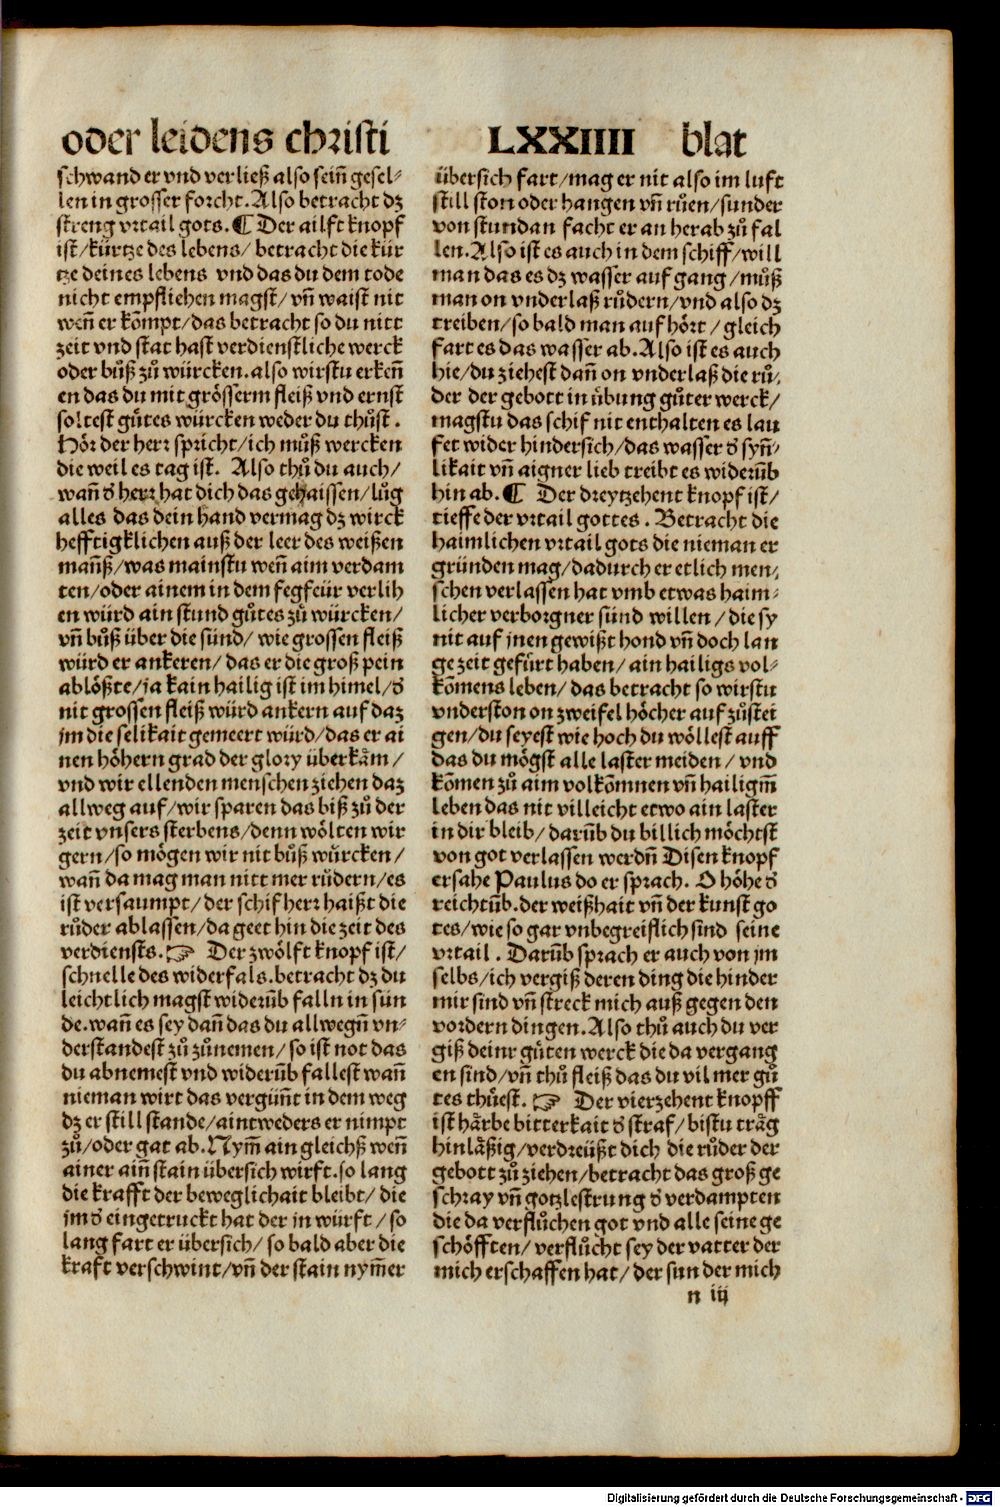 oder leidens christi LXXIIII blat
schwand er vnd verließ also sein̄ gesel-
len in grosser forcht. Also betracht dz
streng vrtail gots. ¶ Der ailft knopf
ist/kürtze des lebens/ betracht die kür
tze deines lebens vnd das du dem tode
nicht empfliehen magst/ vn̄ waist nit
wen̄ er kōmpt/das betracht so du nitt
zeit vnd stat hast verdienstliche werck
oder bůß zů würcken. also wirstu erken̄
en das du mit grösserm fleiß vnd ernst
soltest gůtes würcken weder du thůst.
Hör der herr spricht/ich můß wercken
die weil es tag ist. Also thů du auch/
wan̄ d̕ herr hat dich das gehaissen/lůg
alles das dein hand vermag dz wirck
hefftigklichen auß der leer des weißen
man̄ß/was mainstu wen̄ aim verdam
ten/oder ainem in dem fegfeür verlih
en würd ain stund gůtes zů würcken/
vn̄ bůß über die sünd/ wie grossen fleiß
würd er ankeren/ das er die groß pein
ablößte/ja kain hailig ist im himel/d̕
nit grossen fleiß würd ankern auf daz
jm die selikait gemeert würd/das er ai
nen höhern grad der glory überkäm/
vnd wir ellenden menschen ziehen daz
allweg auf/wir sparen das biß zů der
zeit vnsers sterbens/denn wölten wir
gern/so mögen wir nit bůß würcken/
wan̄ da mag man nitt mer růdern/es
ist versaumpt/der schif herr haißt die
růder ablassen/da geet hin die zeit des
verdiensts. ☞ Der zwölft knopf ist/
schnelle des widerfals. betracht dz du
leichtlich magst widerūb falln in sün
de. wan̄ es sey dan̄ das du allwegn̄ vn-
derstandest zů zůnemen/so ist not das
du abnemest vnd widerūb fallest wan̄
nieman wirt das vergün̄t in dem weg
dz er still stande/aintweders er nimpt
zů/oder gat ab. Nym̄ ain gleichß wen̄
ainer ain̄ stain übersich wirft. so lang
die krafft der beweglichait bleibt/ die
jm d̕ eingetruckt hat der jn würft/so
lang fart er übersich/so bald aber die
kraft verschwint/vn̄ der stain nym̄er
übersich fart/mag er nit also im luft
still ston oder hangen vn̄ rüen/sunder
von stundan facht er an herab zů fal
len. Also ist es auch in dem schiff/will
man das es dz wasser auf gang/můß
man on vnderlaß růdern/vnd also dz
treiben/so bald man auf hört/gleich
fart es das wasser ab. Also ist es auch
hie/du ziehest dan̄ on vnderlaß die rů-
der der gebott in übung gůter werck/
magstu das schif nit enthalten es lau
fet wider hindersich/das wasser d̕ syn̄-
likait vn̄ aigner lieb treibt es widerūb
hin ab. ¶ Der dreytzehent knopf ist/
tieffe der vrtail gottes. Betracht die
haimlichen vrtail gots die nieman er
gründen mag/dadurch er etlich men-
schen verlassen hat vmb etwas haim-
licher verborgner sünd willen/die sy
nit auf jnen gewißt hond vn̄ doch lan
ge zeit gefürt haben/ ain hailigs vol-
kōmens leben/das betracht so wirstu
vnderston on zweifel höcher auf zůstei
gen/du seyest wie hoch du wöllest auff
das du mögst alle laster meiden/ vnd
kōmen zů aim volkōmnen vn̄ hailigm̄
leben das nit villeicht etwo ain laster
in dir bleib/darūb du billich möchtst
von got verlassen werdn̄ Disen knopf
ersahe Paulus do er sprach. O höhe d̕
reichtūb. der weißhait vn̄ der kunst go
tes/wie so gar vnbegreiflich sind seine
vrtail. Darūb sprach er auch von jm
selbs/ich vergiß deren ding die hinder
mir sind vn̄ streck mich auß gegen den
vordern dingen. Also thů auch du ver
giß deinr gůten werck die da vergang
en sind/vn̄ thů fleiß das du vil mer gů
tes thüest. ☞ Der vierzehent knopff
ist härbe bitterkait d̕ straf/bistu träg
hinläßig/verdreüßt dich die růder der
gebott zů ziehen/betracht das groß ge
schray vn̄ gotzlestrung d̕ verdampten
die da verflůchen got vnd alle seine ge
schöfften/verflůcht sey der vatter der
mich erschaffen hat/der sun der mich
n iij
Digitalisierung gefördert durch die Deutsche Forschungsgemeinschaft - DFG